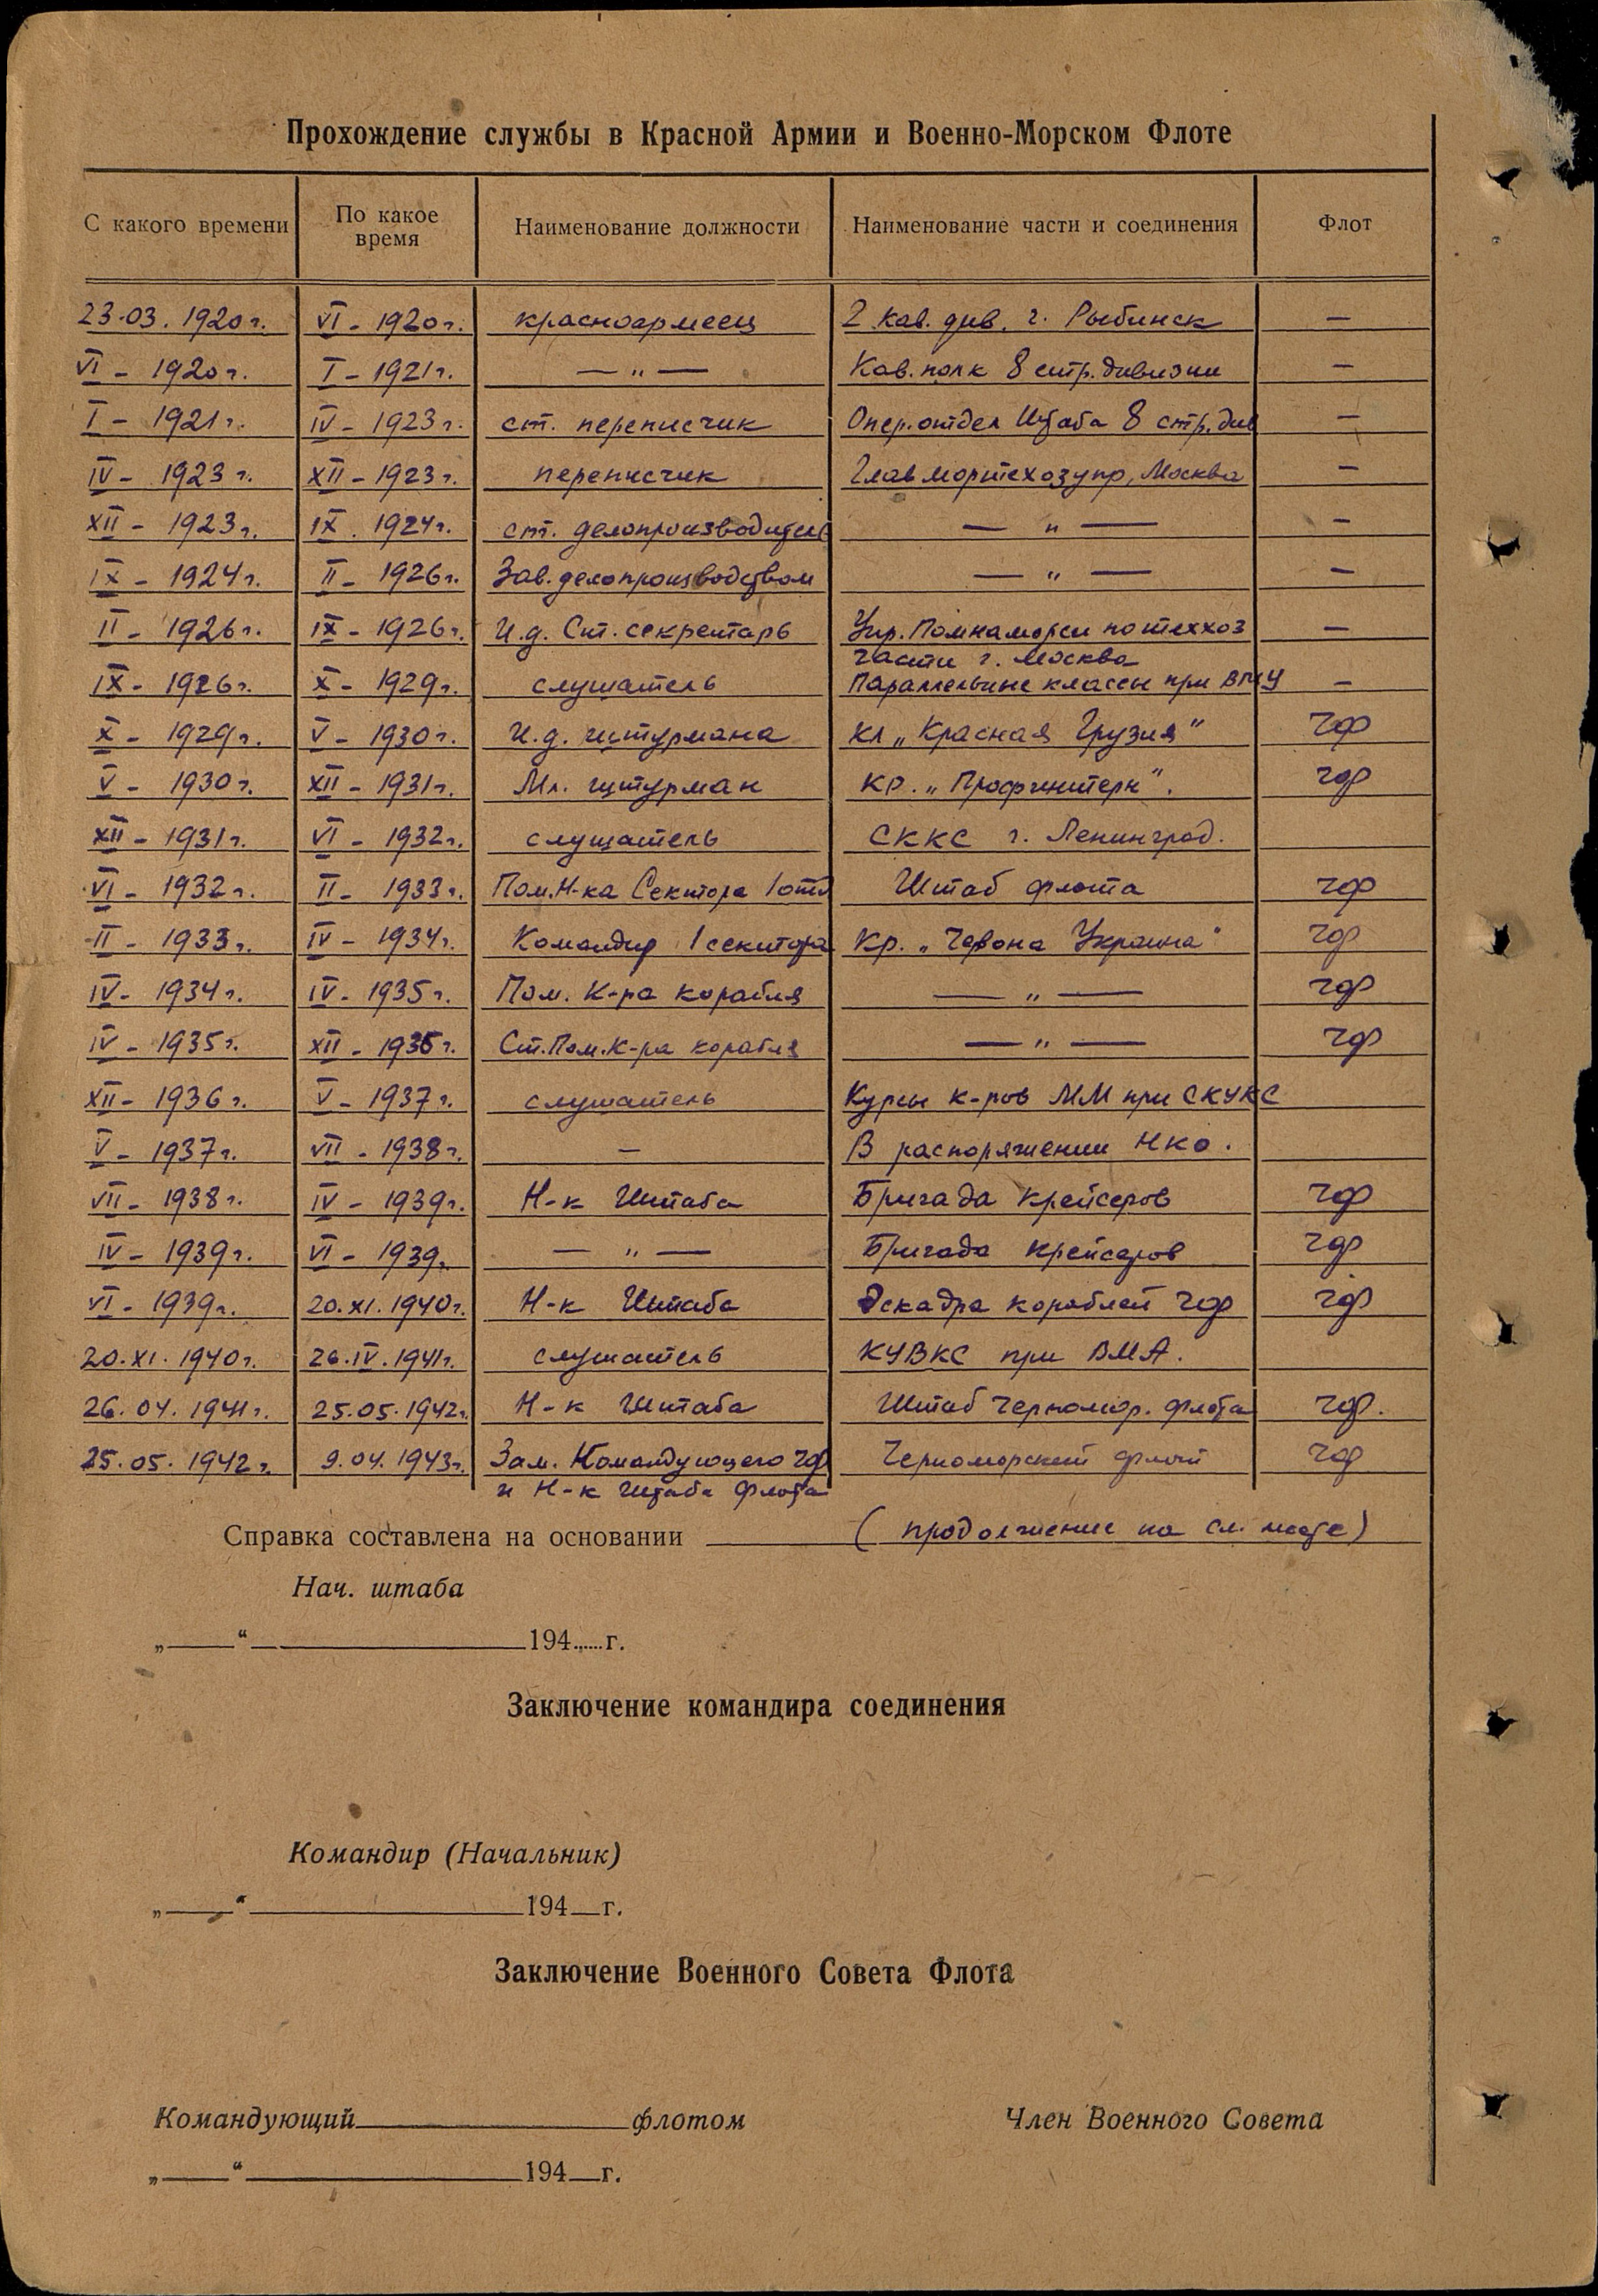 Прохождение службы в Красной Армии и Военно-Морском Флоте
С какого времени По какое время Наименование должности Наименование части и соединения Флот
23.03.1920г. VI - 1920г. красноармеец 2 кав. див. г. Рыбинск —
VI - 1920г. I - 1921г. — " — Кав. полк 8 стр. дивизии —
I - 1921г. IV - 1923г. ст. переписчик Опер. отдел Штаба 8 стр. див —
IV - 1923г. XII - 1923г. переписчик Главмортехозупр, Москва —
XII - 1923г. IX. 1924г. ст. делопроизводитель — " — —
IX - 1924г. II - 1926г. Зав. делопроизводством — " — —
II - 1926г. IX - 1926г. И.д. Ст. секретарь Упр. Помнаморси по теххоз —
части г. Москва
IX - 1926г. X - 1929г. слушатель Параллельные классы при ВМУ —
X - 1929г. V - 1930г. И.д. штурмана кл „Красная Грузия" ЧФ
V - 1930г. XII - 1931г. Мл. штурман кр. „Профинтерн". ЧФ
XII - 1931г. VI - 1932г. слушатель СККС г. Ленинград.
VI - 1932г. II - 1933г. Пом. Н-ка Сектора 1 отд Штаб флота ЧФ
II - 1933г. IV - 1934г. Командир 1 сектора Кр. „Червона Украина" ЧФ
IV - 1934г. IV - 1935г. Пом. К-ра корабля — " — ЧФ
IV - 1935г. XII - 1936г. Ст. Пом. К-ра корабля — " — ЧФ
XII - 1936г. V - 1937г. слушатель Курсы к-ров ММ при СКУКС
V - 1937г. VII - 1938г. — В распоряжении НКО.
VII - 1938г. IV - 1939г. Н-к Штаба Бригада крейсеров ЧФ
IV - 1939г. VI - 1939г. — " — Бригада крейсеров ЧФ
VI - 1939г. 20.XI.1940г. Н-к Штаба Эскадра кораблей ЧФ ЧФ
20.XI.1940г. 26.IV.1941г. слушатель КУВКС при ВМА.
26.04.1941г. 25.05.1942г. Н-к Штаба Штаб Черномор. флота ЧФ.
25.05.1942г. 9.04.1943г. Зам. Командующего ЧФ Черноморский флот ЧФ
и Н-к Штаба Флота
Справка составлена на основании (продолжение на сл. листе)
Нач. штаба
„ “ 194 г.
Заключение командира соединения
Командир (Начальник)
„ “ 194 г.
Заключение Военного Совета Флота
Командующий флотом Член Военного Совета
„ “ 194 г.